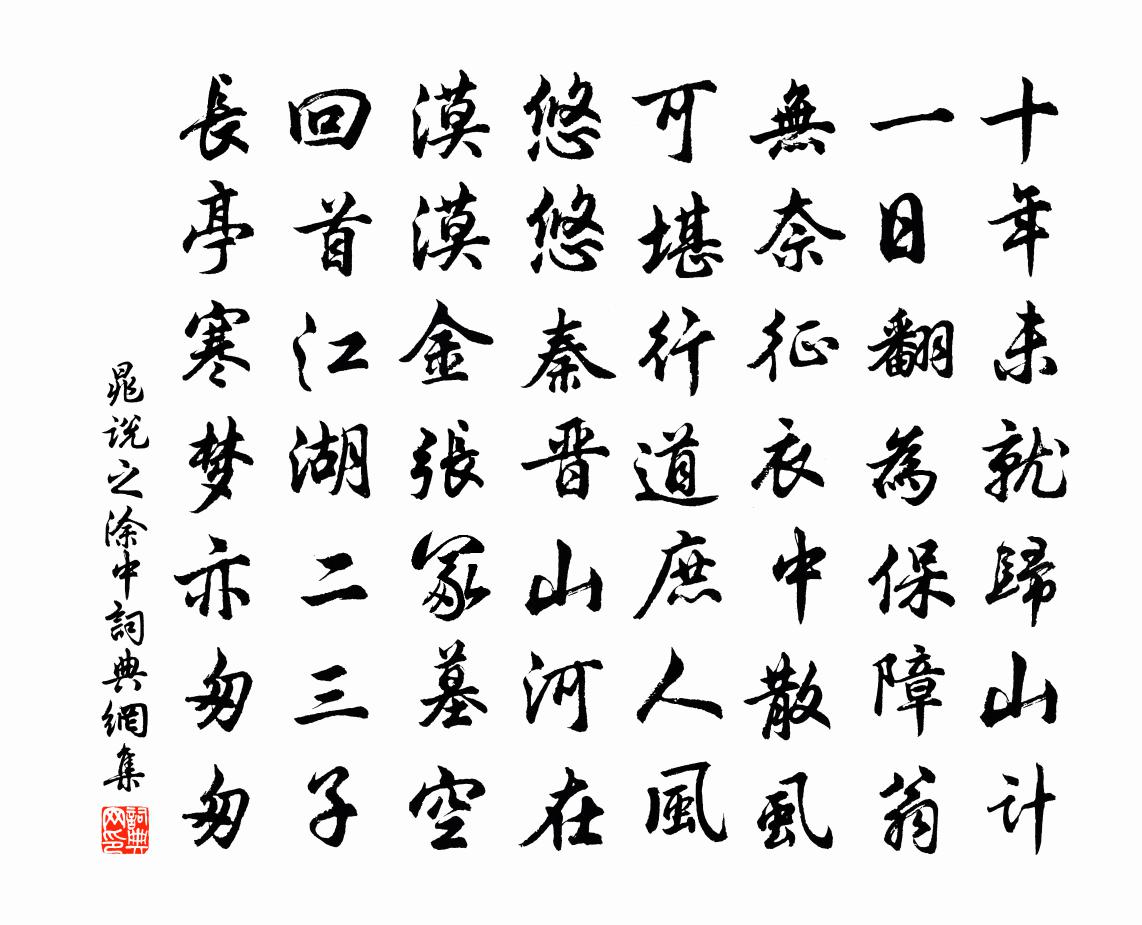 十年未就歸山计
一日翻為保障翁
無奈征衣中散虱
可堪行道庶人風
悠悠秦晋山河在
漠漠金張冢墓空
回首江湖二三子
長亭寒梦亦匆匆
晁说之涂中詞典網集
詞典网印